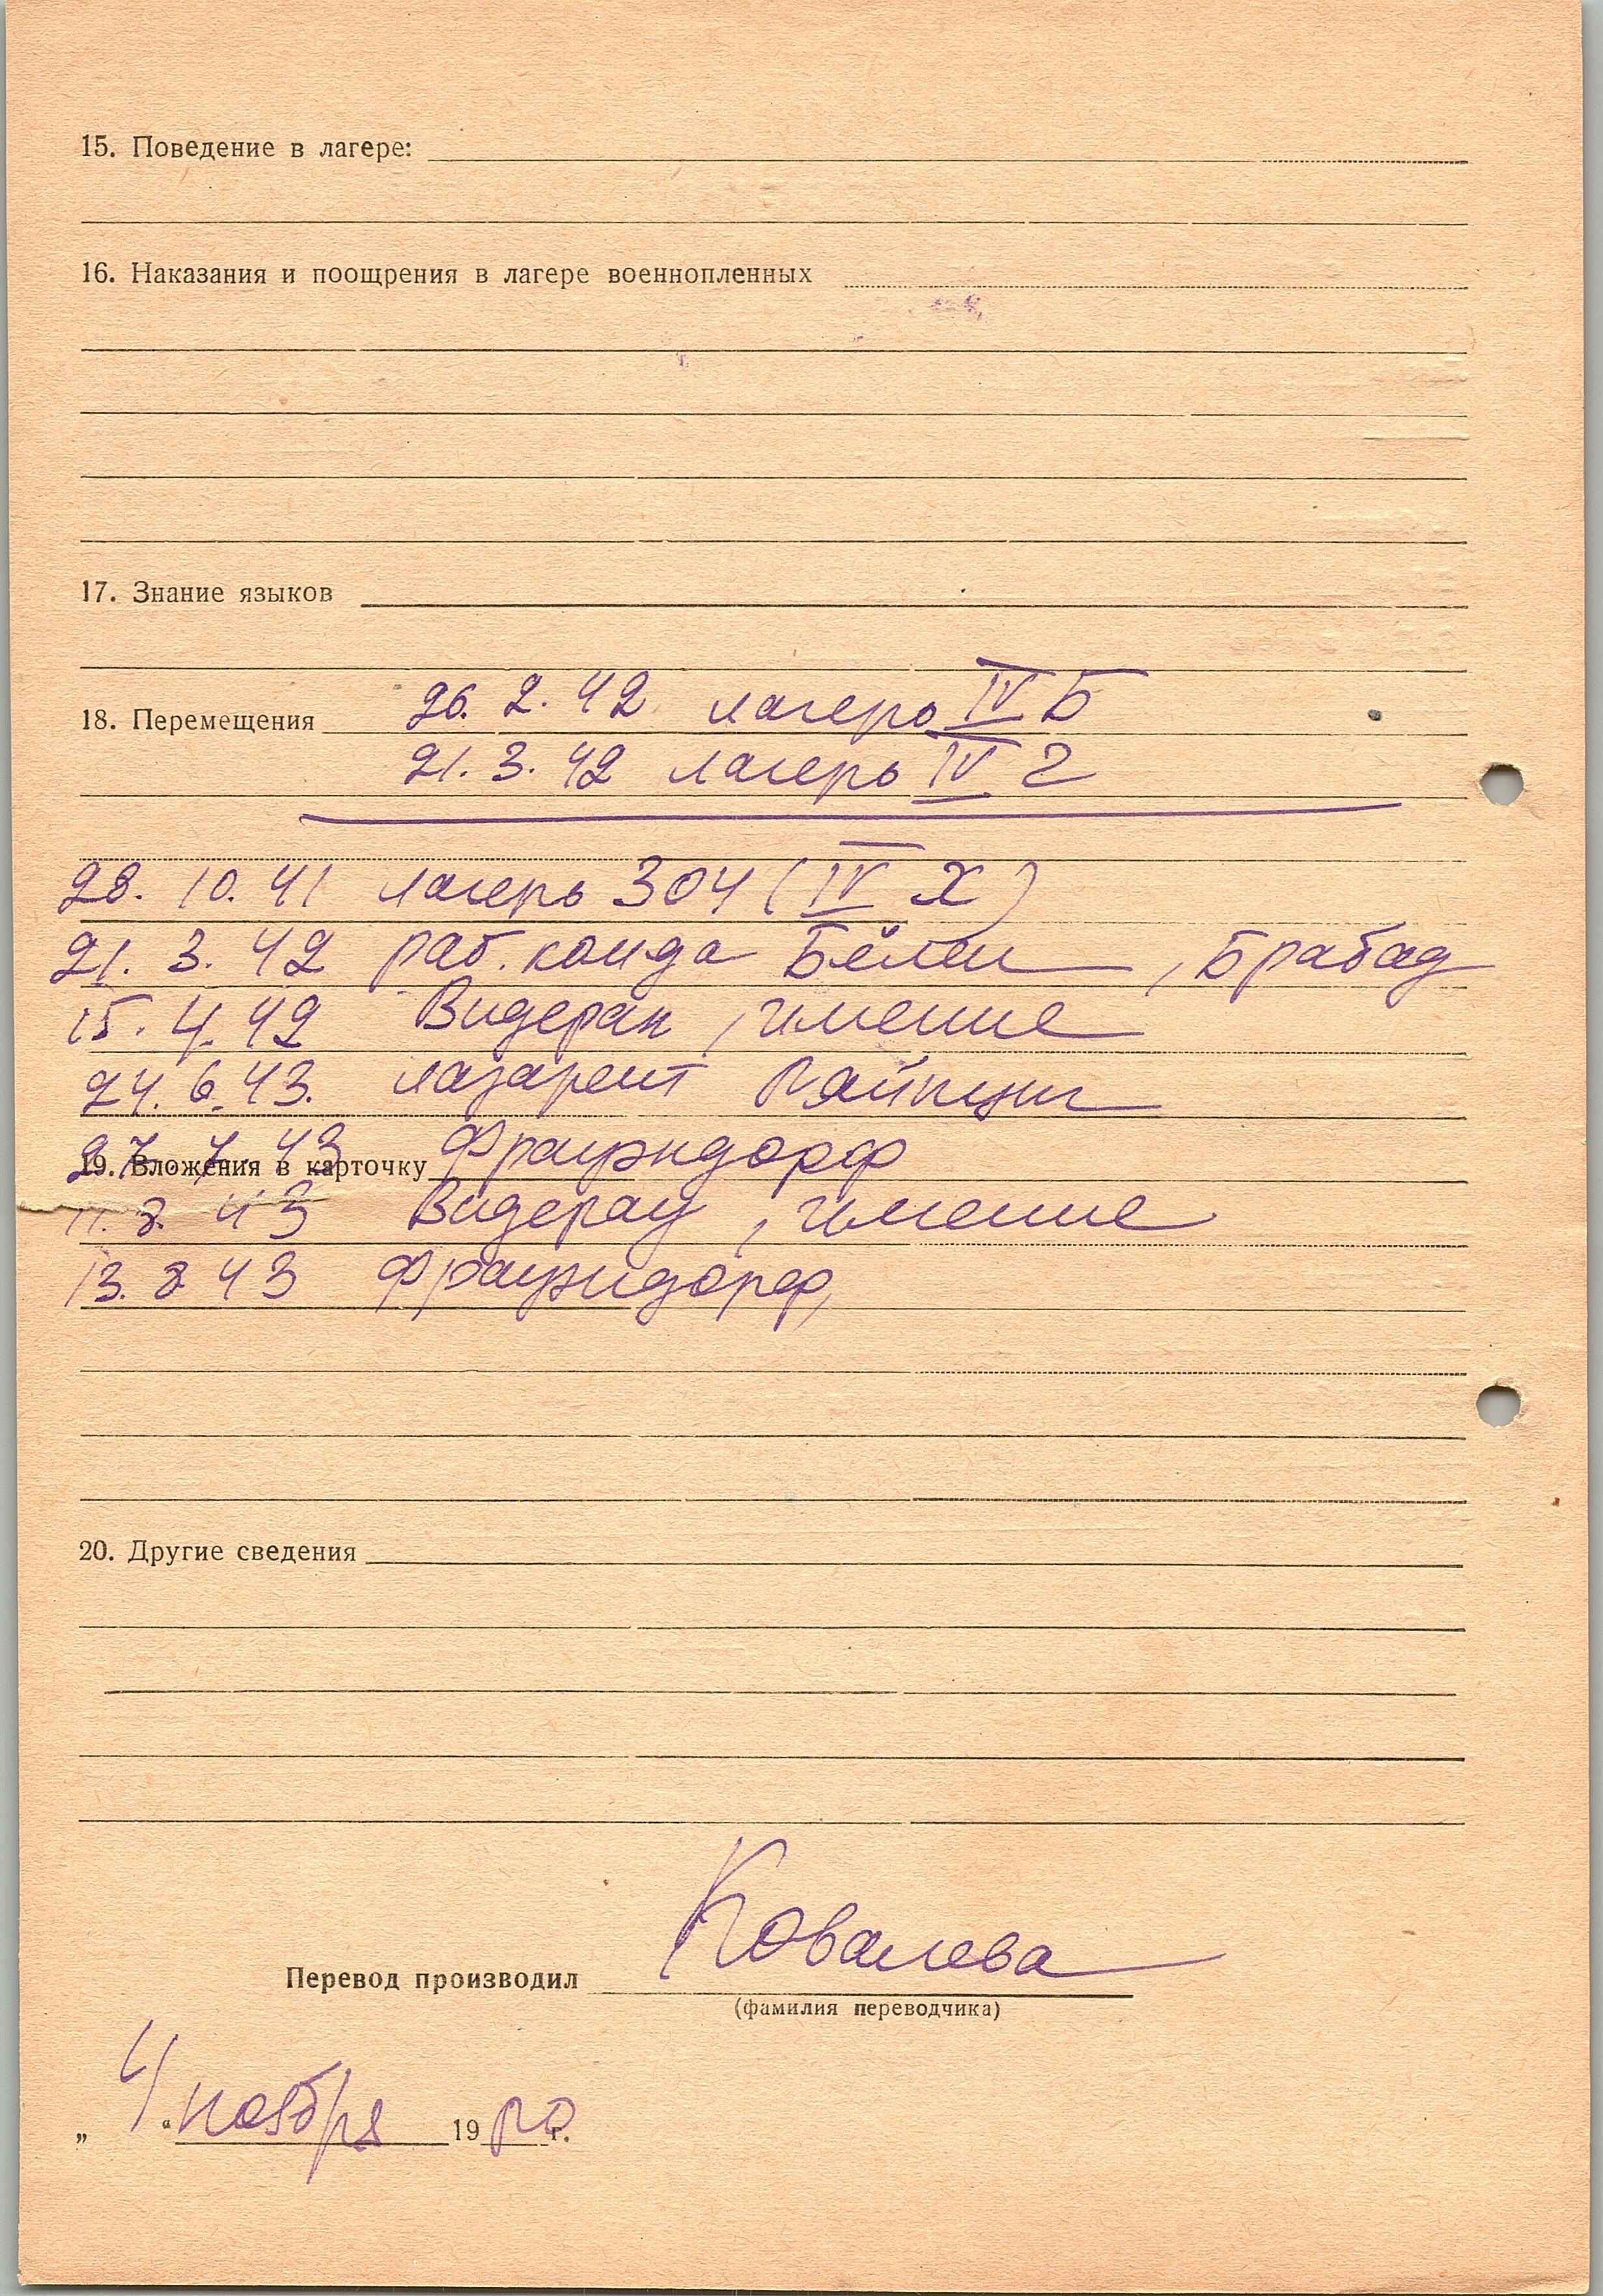 15. Поведение в лагере:
16. Наказания и поощрения в лагере военнопленных
17. Знание языков
18. Перемещения 26. 2. 42 лагерь IV Б
21. 3. 42 лагерь IV Г
28. 10. 41 лагерь 304 (IV Х)
21. 3. 42 раб. конда Бёлен, Брабад
15. 4. 42 Видерак, имение
24. 6. 43. лазарент
27. 7. 43 Фрауэндорф
19. Вложения в карточку
11. 8. 43 Видерау, имение
13. 8 43 Фрауэндорф,
20. Другие сведения
Ковалева
Перевод производил
(фамилия переводчика)
„ 4 “ ноября 19 г.